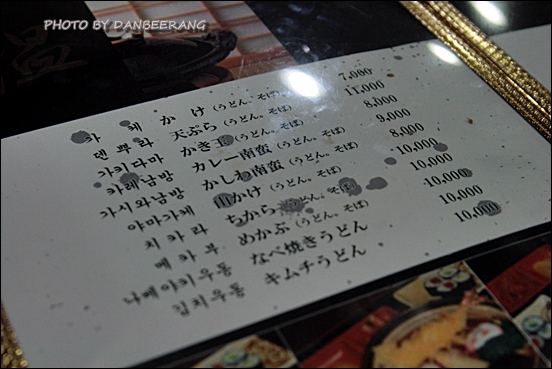 PHOTO BY DANBEERANG
카 케 かけ (うどん。そば) 7,000
덴 뿌 라 天ぷら (うどん。そば) 11,000
가키다마 かき玉 (うどん。そば) 8,000
카레남방 カレー南蛮 (うどん。そば) 9,000
가시와남방 かしわ南蛮 (うどん。そば) 8,000
야마가케 山かけ (うどん。そば) 10,000
치 카 라 ちから (うどん。そば) 10,000
메 카 부 めかぶ (うどん。そば) 10,000
나베야키우동 なべ焼きうどん 10,000
김치우동 キムチうどん 10,000